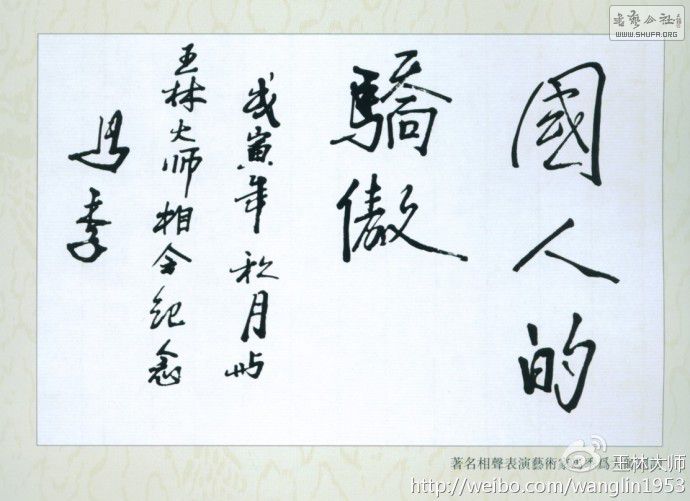 國人的
驕傲
戊寅年秋月與
王林大师相会纪念
马季
書藝公社
WWW.SHUFA.ORG
著名相聲表演藝術家
爲
王林大师
http://weibo.com/wanglin1953